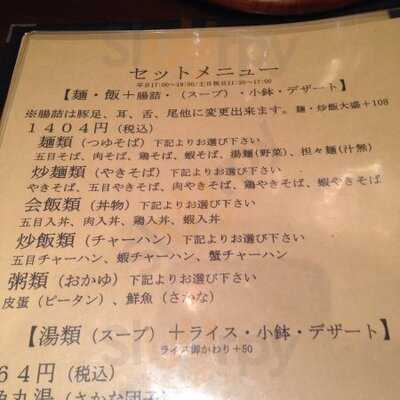 セットメニュー
【麺・飯＋腸詰・(スープ)・小鉢・デザート】
※腸詰は豚足、耳、舌、尾他に変更出来ます。麺・炒飯大盛＋108
１４０４円（税込）
麺類（つゆそば）下記よりお選び下さい
五目そば、肉そば、鶏そば、蝦そば、湯麺(野菜)、担々麺(汁無)
炒麺類（やきそば）下記よりお選び下さい
やきそば、五目やきそば、肉やきそば、鶏やきそば、蝦やきそば
会飯類（丼物）下記よりお選び下さい
五目入丼、肉入丼、鶏入丼、蝦入丼
炒飯類（チャーハン）下記よりお選び下さい
五目チャーハン、蝦チャーハン、蟹チャーハン
粥類（おかゆ）下記よりお選び下さい
皮蛋（ピータン）、鮮魚（さかな）
【湯類（スープ）＋ライス・小鉢・デザート】
ライス御かわり＋50
６４円（税込）
魚丸湯（さかな団子）